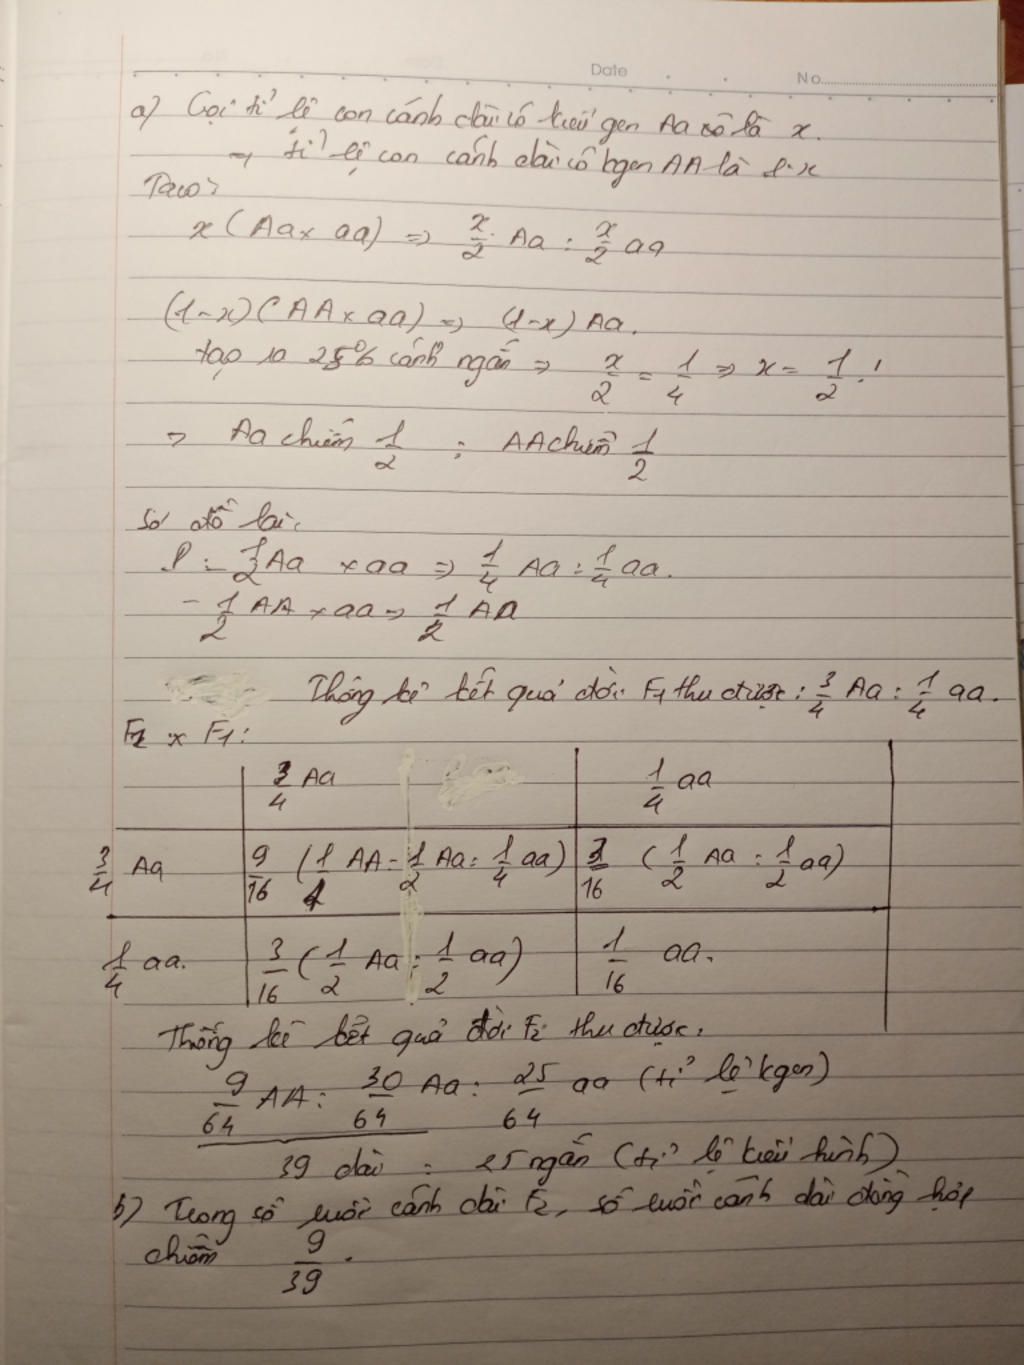 Date
No.
a) Gọi tỉ lệ con cánh dài có kiểu gen Aa là x.
→ tỉ lệ con cánh dài có kgen AA là 1-x
Ta có:
x (Aa x aa) => x/2 Aa : x/2 aa
(1-x) (AA x aa) => (1-x) Aa.
tạo ra 25% cánh ngắn => x/2 = 1/4 => x = 1/2
=> Aa chiếm 1/2 ; AA chiếm 1/2
Sơ đồ lai:
P: - 1/2 Aa x aa => 1/4 Aa : 1/4 aa.
- 1/2 AA x aa => 1/2 Aa
Thống kê kết quả đời F1 thu được: 3/4 Aa : 1/4 aa.
F1 x F1:
3/4 Aa 1/4 aa
3/4 Aa 9/16 (1/4 AA : 1/2 Aa : 1/4 aa) 3/16 (1/2 Aa : 1/2 aa)
1/4 aa. 3/16 (1/2 Aa : 1/2 aa) 1/16 aa.
Thống kê kết quả đời F2 thu được:
9/64 AA : 30/64 Aa : 25/64 aa (tỉ lệ kgen)
39 dài : 25 ngắn (tỉ lệ kiểu hình)
b) Trong số ruồi cánh dài F2, số ruồi cánh dài đồng hợp
chiếm 9/39.